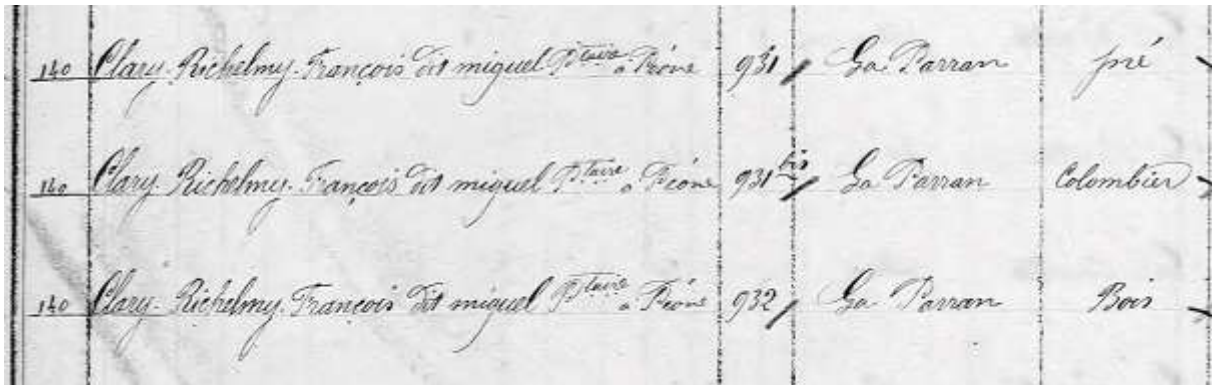 140 Clary Richelmy François dit miguel Ptaire à Péone 931 La Parran pré
140 Clary Richelmy François dit miguel Ptaire à Péone 931 bis La Parran Colombier
140 Clary Richelmy François dit miguel Ptaire à Péone 932 La Parran Bois